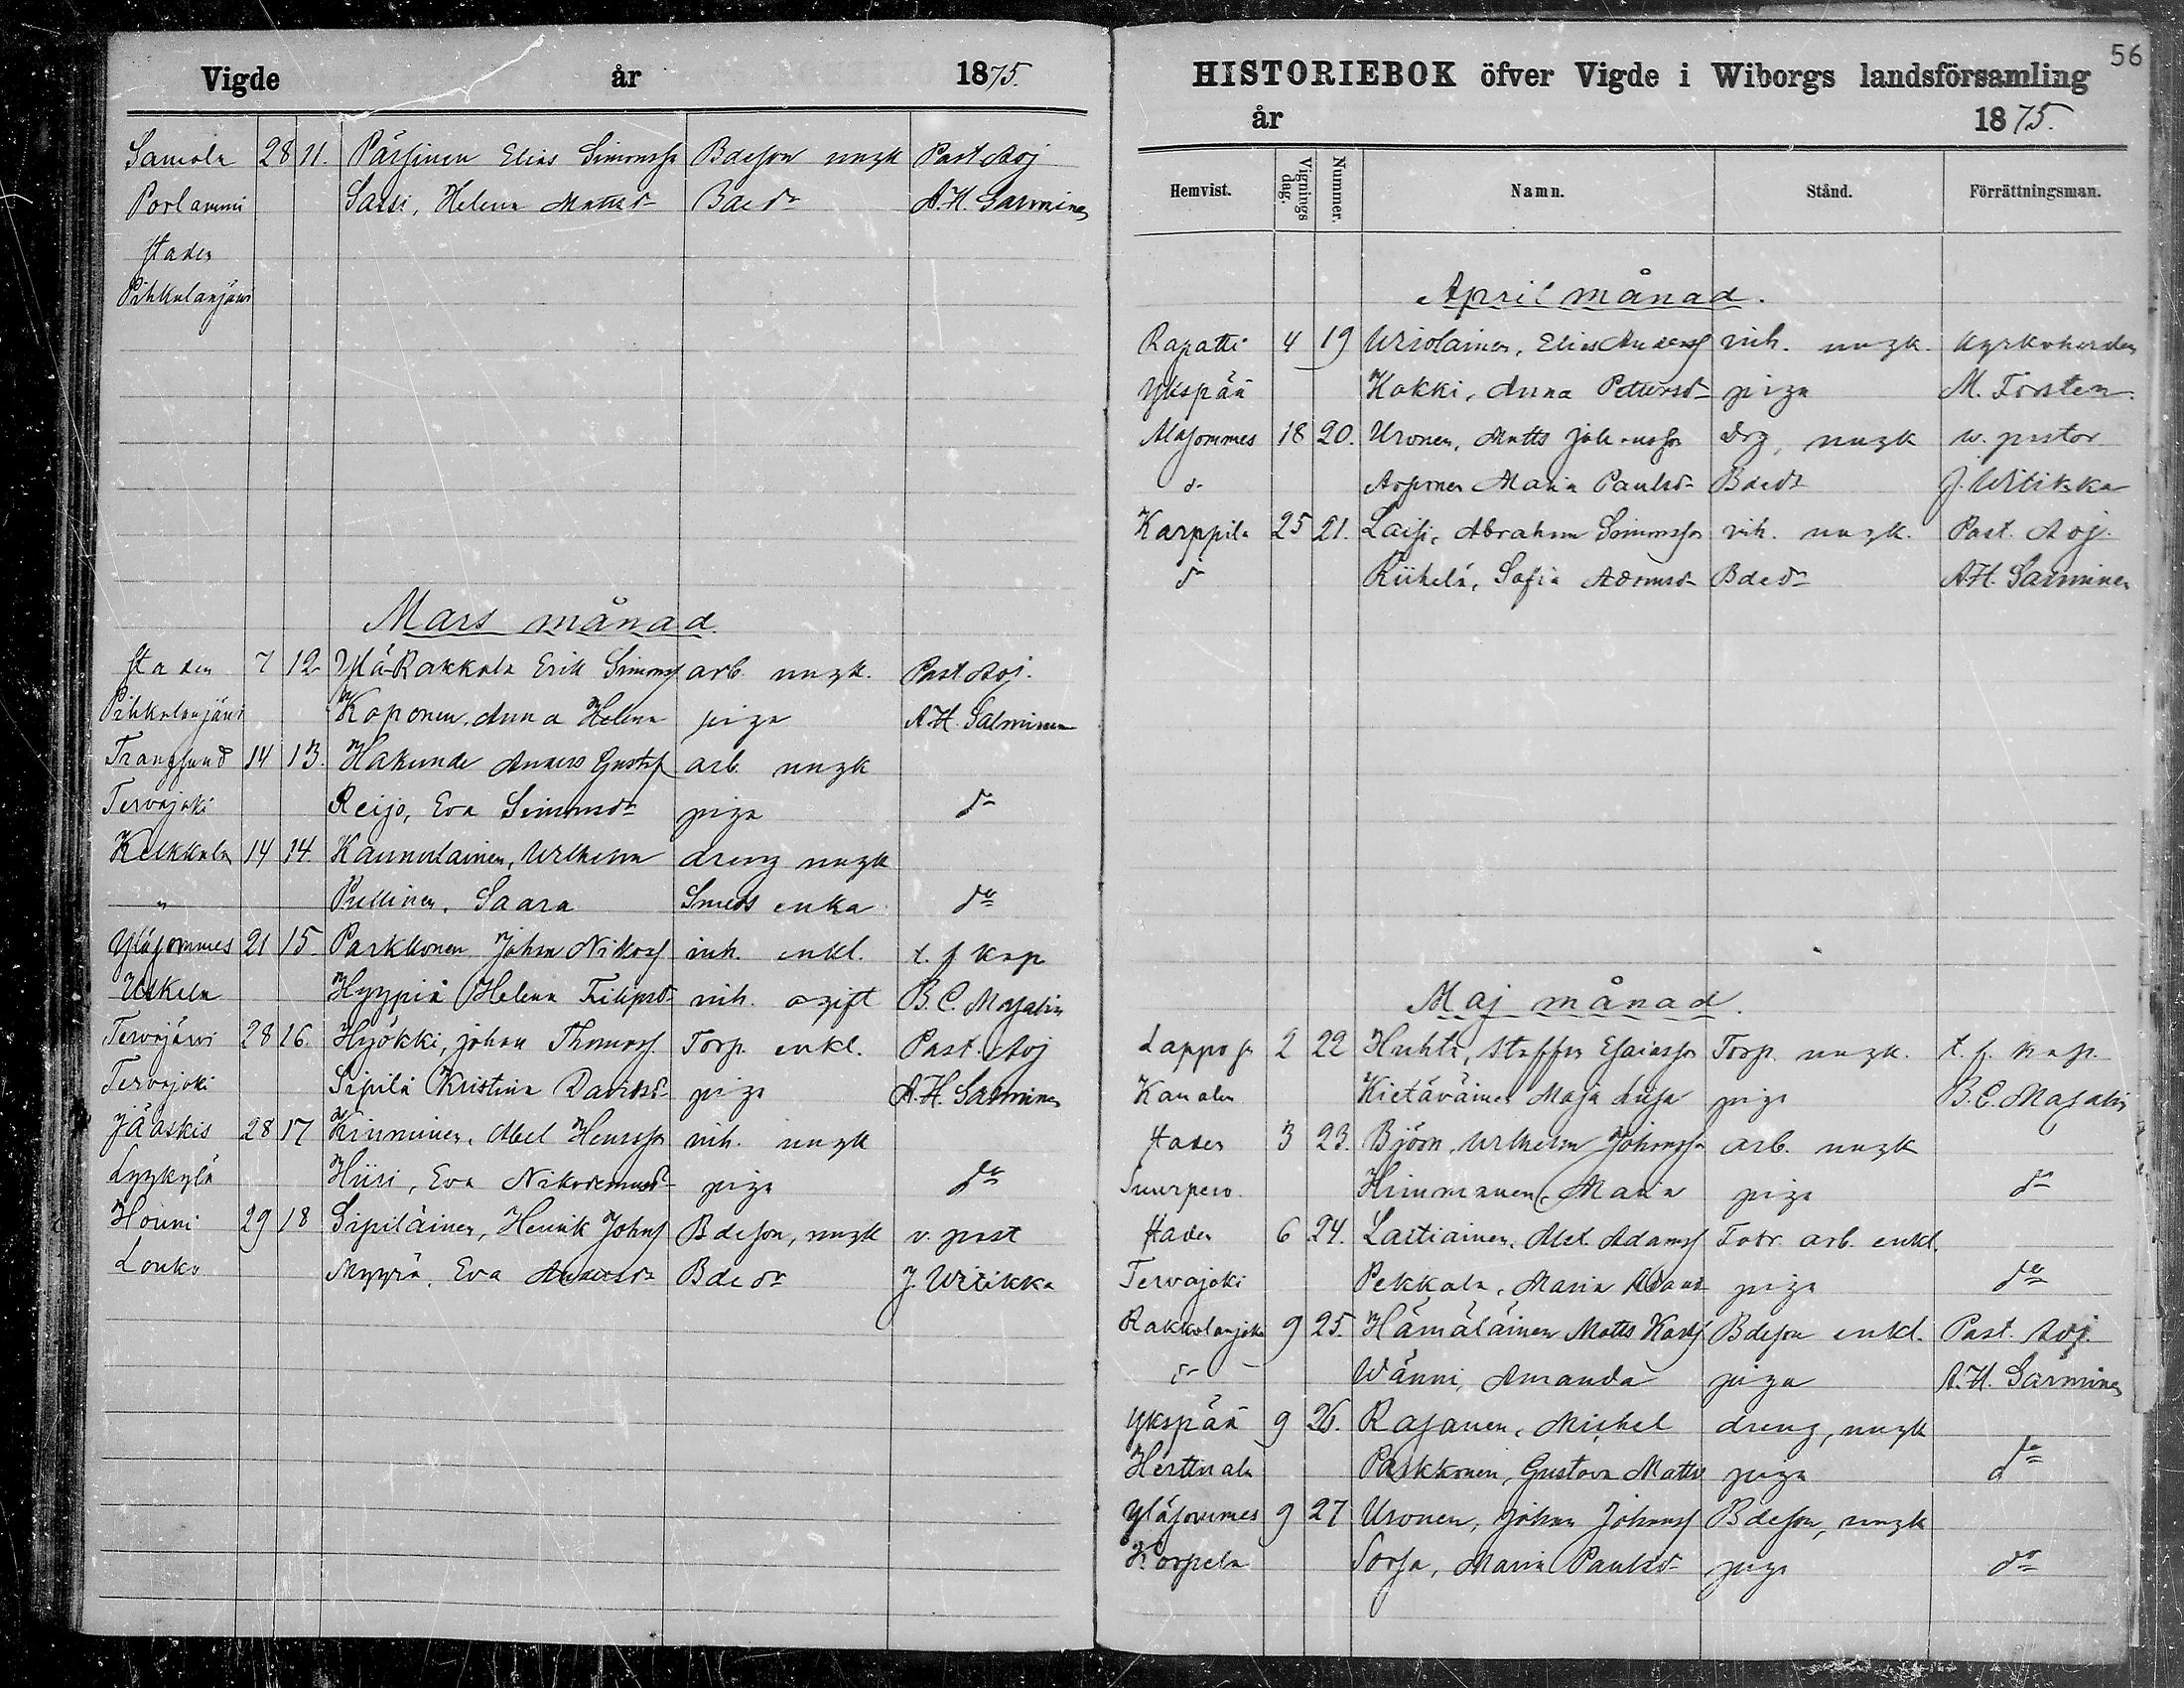 Vigde år 1875.
Samola 28 11. Pärssinen Elias Simonss Bdeson ungk Past Adj
Porlammi Sassi, Helena Mattsdr Bdedr A. H. Sarminen
Staden
Pihkalanjärvi
Mars månad.
Staden 7 12 Ylä-Rakkola Erik Simonss arb. ungk. Past Adj.
Pihkalanjärvi Koponen, Anna Helena piga A H. Salminen
Trangsund 14 13. Hakunde Anders Gustaf arb. ungk
Tervajoki Reijo, Eva Simonsdr piga do
Kelkkala 14 14. Kaunulainen, Wilhelm dreng ungk
" Pullinen, Saara Smeds enka do
Yläsommes 21 15. Parkkonen Johan Nikoss inh. enkl. t. f kap
Uskela Hyyppiä Helena Filipsdr inh. ogift B. C. Masalin
Tervajärvi 28 16. Hyökki, Johan Thomass. Torp. enkl. Past. Adj
Tervajoki Sipilä Kristina Davidsdr piga A. H. Sarminen
Jääskis 28 17 Kinnunen, Abel Henrsson inh. ungk
Lyykylä Hiisi, Eva Nikodemusdr piga do
Houni 29 18 Sipiläinen, Henrik Johnss Bdeson, ungk v. past
Louko Myyrä, Eva Andersdr Bdedr J. Witikka
56
HISTORIEBOK öfver Vigde i Wiborgs landsförsamling
år 1875.
Hemvist. Vignings dag. Nummer. Namn. Stånd. Förrättningsman.
April månad.
Rapatti 4 19 Wriolainen, Elias Anderss inh. ungk. Kyrkoherden
Ykspää Kokki, Anna Petersdr piga M. Forstén.
Alasommes 18 20. Uronen, Matts Johansson drg, ungk w. pastor
do Arponen Maria Paulsdr Bdedr J. Witikka
Karppila 25 21. Laisi, Abraham Simonsson inh. ungk. Past. Adj.
do Riihelä, Sofia Adamsdr Bdedr A.H. Sarminen
Maj månad.
Lappo s. 2 22 Huhta, Staffan Esaiasson Torp. ungk. t. f. kap.
Kanalen Kietäväinen Maja Lisa piga B. C. Masalin
Staden 3 23. Björn, Wilhelm Johansson arb. ungk
Suurpero Himmanen, Maria piga do
Staden 6 24. Lastiainen, Abel Adamss Fabr. arb. enkl.
Tervajoki Pekkala, Maria Adamd piga do
Rakkolanjoki 9 25. Hämäläinen Matts Karlss Bdeson enkl. Past. Adj.
do Wänni, Amanda piga A. H. Sarminen
Ykspää 9 26. Rasanen, Michel dreng, ungk
Herttuala Parkkonen, Gustava Mattsd piga do
Yläsommes 9 27 Uronen, Johan Johanss Bdeson, ungk
Korpela Sorsa, Maria Paulsdr piga do